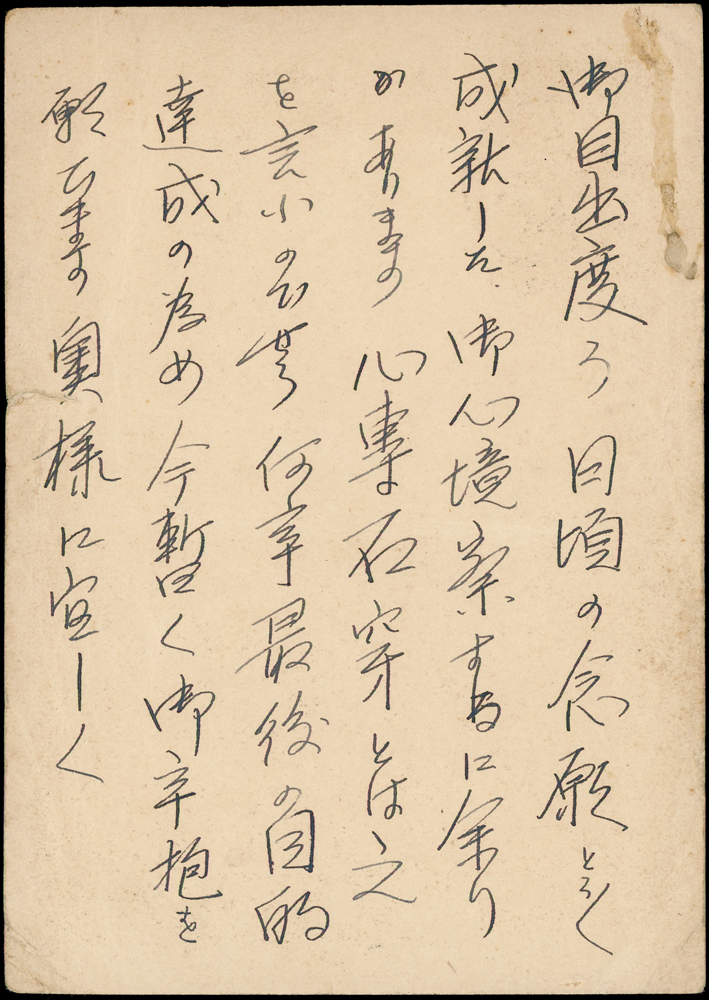 御目出度う 日頃の念願とう〱
成就した、御心境察するに余り
があります 心専石穿とは之
を言ふのでせう 何卒最後の目的
達成の為め今暫く御辛抱を
願ひます 奥様に宜しく